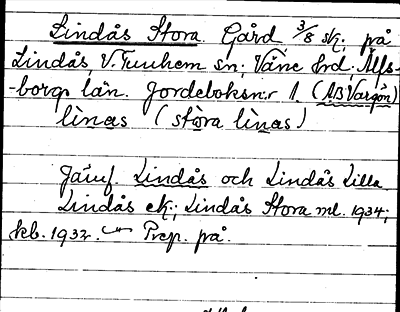 Lindås Stora. Gård 3/8 sk; på
Lindås V. Tunhem sn; Väne hd. Älfs-
-borgs län. Jordeboksn:r 1. (AB Vargön)
lìnas (stòra lìnas)
Jämf. Lindås och Lindås Lilla
Lindås ek.; Lindås Stora ml. 1934;
kb. 1932. Prep. på.